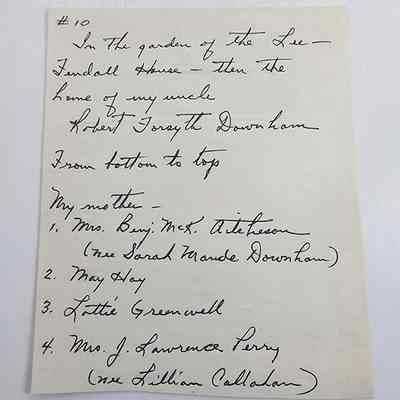 # 10
In The garden of the Lee-
Fendall House - then the
home of my uncle
Robert Forsyth Downham
From bottom to top
My mother -
1. Mrs. Benj. McK. Aitcheson
(nee Sarah Maude Downham)
2. May Hay
3. Lottie Greenwell
4. Mrs. J. Lawrence Perry
(nee Lillian Callahan)